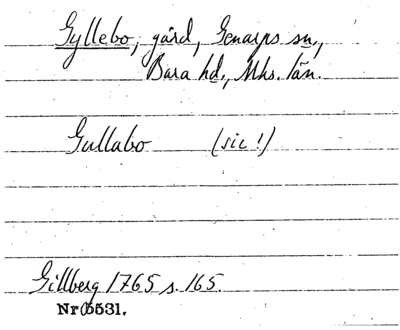 Gyllebo, gård, Genarps sn.,
Bara hd., Mhs. län.
Gullabo (sic!)
Gillberg 1765 s. 165.
Nr 5531.